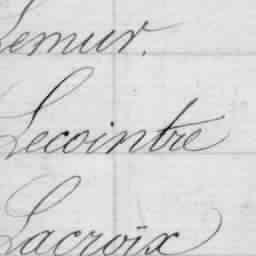 Lemur.
Lecointre
Lacroix